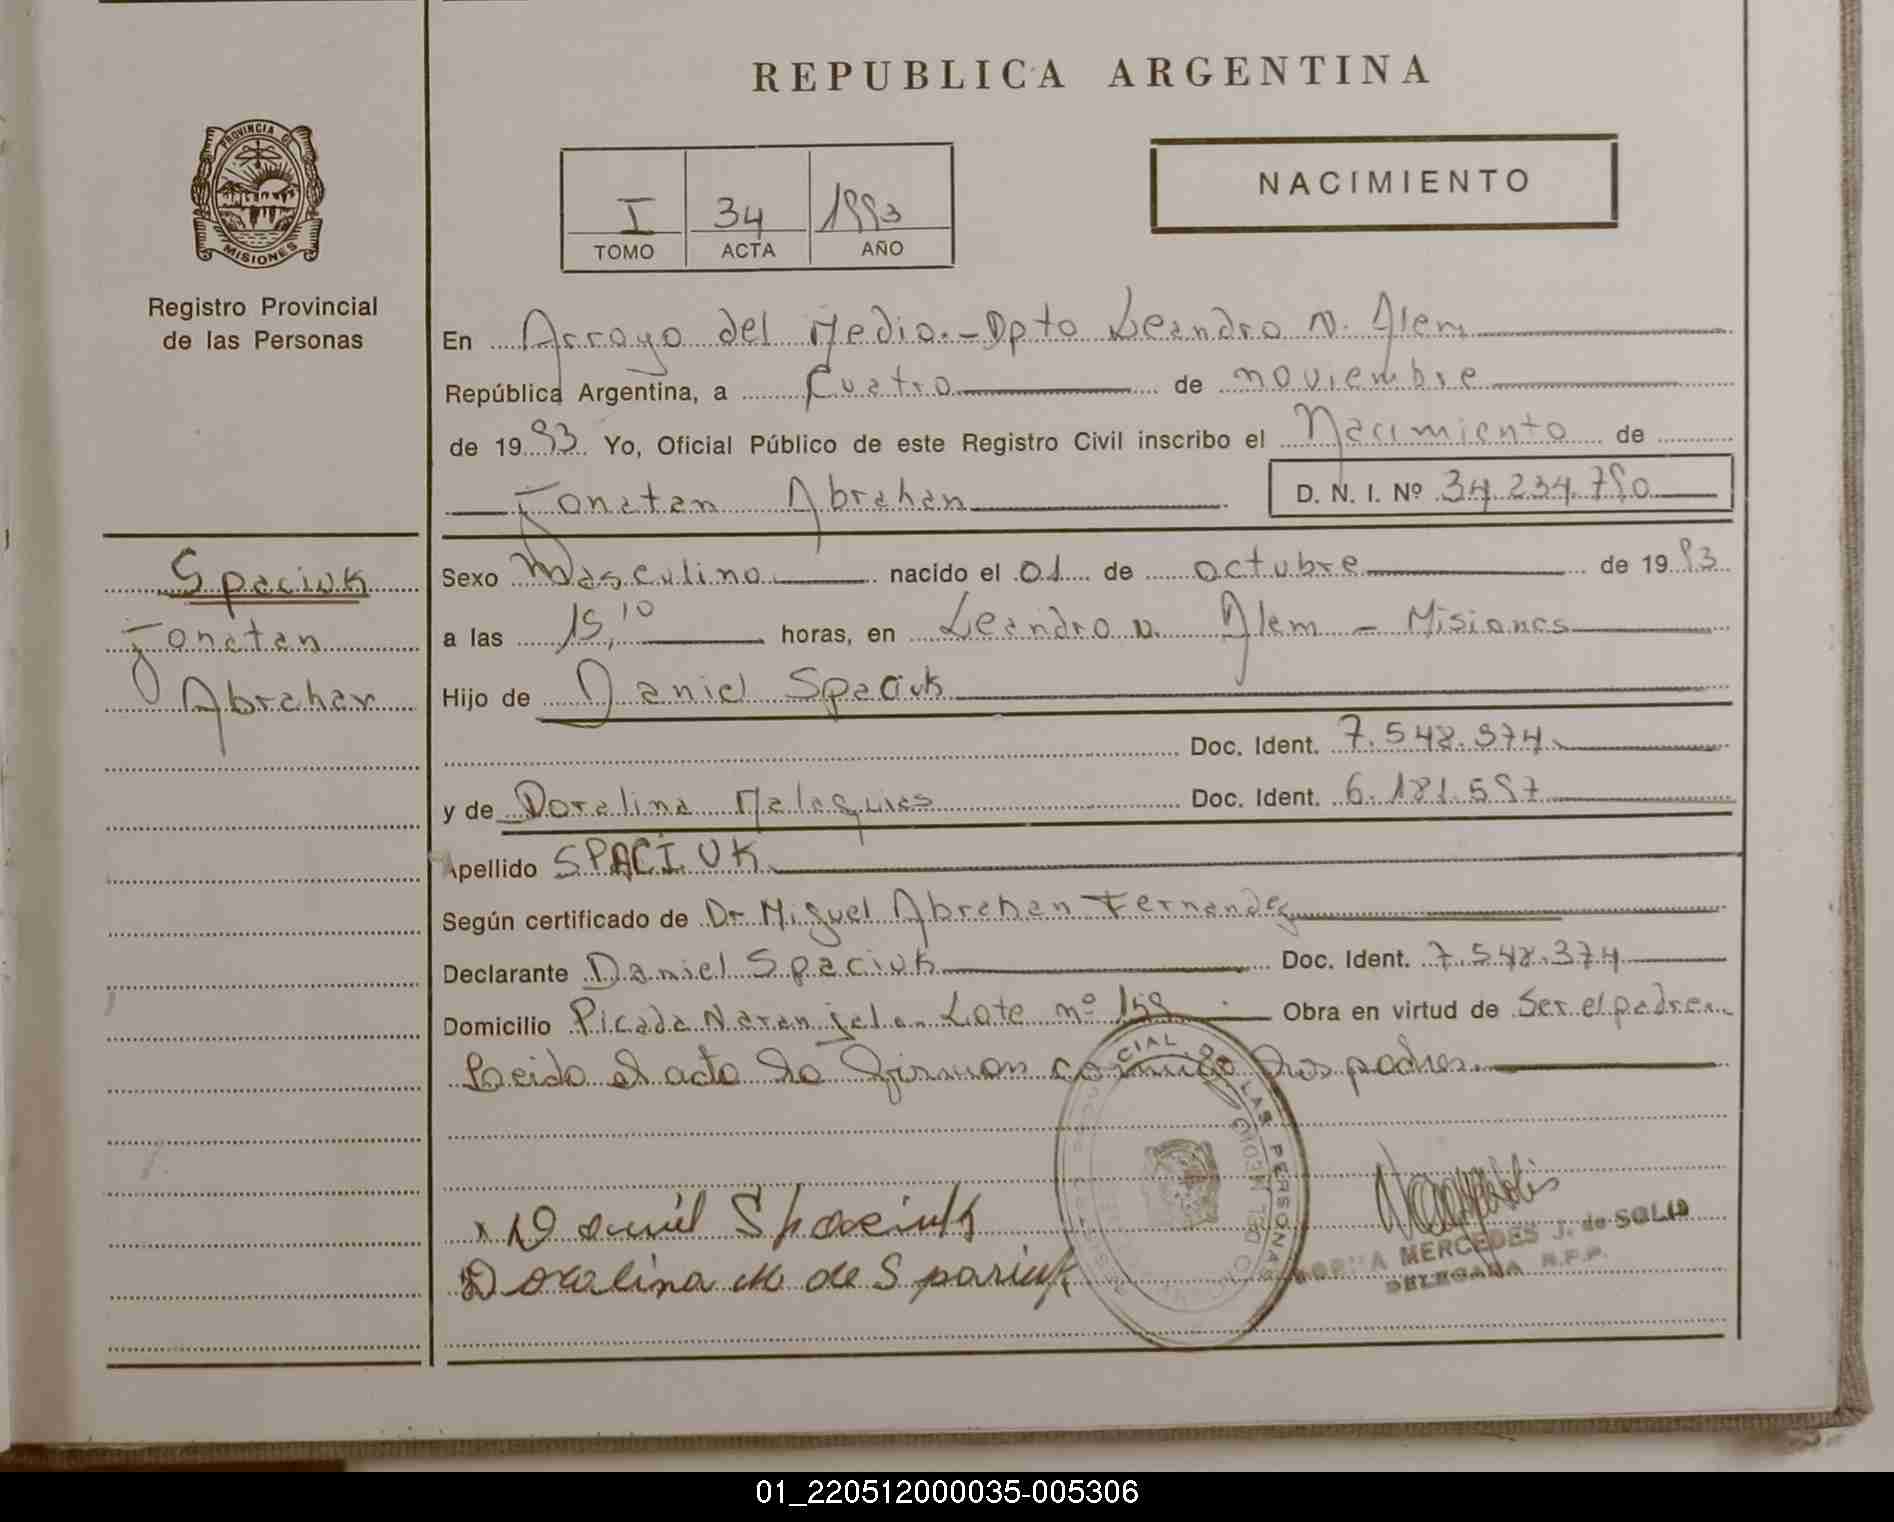 REPUBLICA ARGENTINA
PROVINCIA DE
MISIONES
Registro Provincial
de las Personas
I 34 1993
TOMO ACTA AÑO
NACIMIENTO
En Arroyo del Medio.-Dpto Leandro N. Alem
República Argentina, a Cuatro de noviembre
de 1993 Yo, Oficial Público de este Registro Civil inscribo el Nacimiento de
Jonatan Abrahan
D. N. I. Nº 34.234.790
Spaciuk
Jonatan
Abrahan
Sexo Masculino nacido el 01 de octubre de 1993
a las 15,10 horas, en Leandro N. Alem - Misiones
Hijo de Daniel Spaciuk
Doc. Ident. 7.548.374
y de Doralina Malaquias Doc. Ident. 6.181.597
Apellido SPACIUK
Según certificado de Dr Miguel Abrahan Fernandez
Declarante Daniel Spaciuk Doc. Ident. 7.548.374
Domicilio Picada Naranjal.- Lote nº 159 Obra en virtud de Ser el padre.-
Leida el acta la firman conmigo los padres.
CIAL DE LAS PERSONAS
Daniel Spaciuk
Doralina M de Spaciuk
MERCEDES J. de SOLIS
DELEGADA R.P.P.
01_220512000035-005306